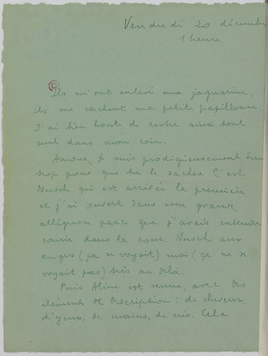 Vendredi 20 décembre
1 heure
Ils m'ont enlevé ma jaquarine,
ils me cachent ma petite papillonne.
J'ai bien honte de rester ainsi tout
seul dans mon coin.
Amour, je suis prodigieusement
trop pour que tu le saches C'est
Nusch qui est arrivée la première
et j'ai ouvert dans une grande
parce que j'avais entendu
courir dans la cour. Nusch aux
anges (ça se voyait) moi (ça ne se
voyait pas) très au delà.
Puis Aline est venue, avec des
éléments de description : de cheveux
d'yeux, de mains, de cris. Cela